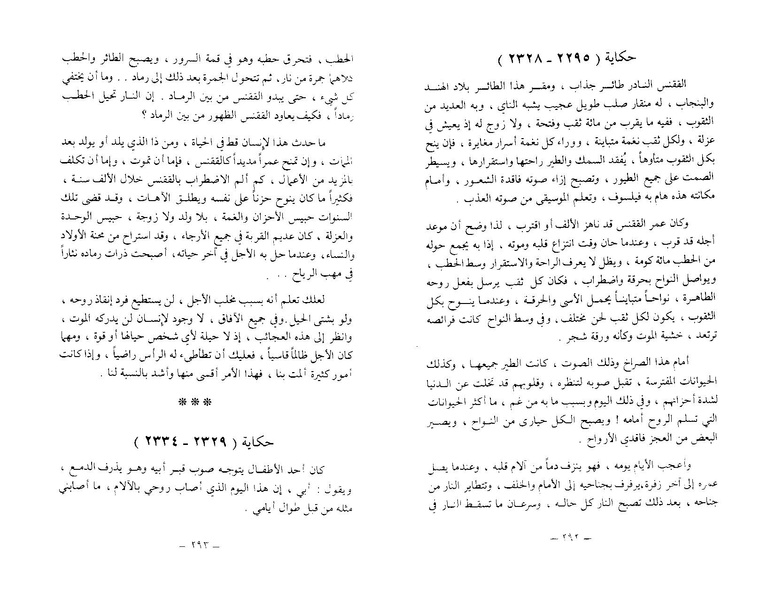 حكاية ( ٢٢٩٥ - ٢٣٢٨ )
الققنس النادر طائر جذاب ، ومقر هذا الطائر بلاد الهند
والبنجاب ، له منقار صلب طويل عجيب يشبه الناي ، وبه العديد من
الثقوب ، ففيه ما يقرب من مائة ثقب وفتحة ، ولا زوج له إذ يعيش في
عزلة ، ولكل ثقب نغمة متباينة ، ووراء كل نغمة أسرار مغايرة ، فإن ينح
بكل الثقوب متأوهاً ، يُفقد السمك والطير راحتها واستقرارها ، ويسيطر
الصمت على جميع الطيور ، وتصبح إزاء صوته فاقدة الشعور ، وأمام
مكانته هذه هام به فيلسوف ، وتعلم الموسيقى من صوته العذب .
وكان عمر الققنس قد ناهز الألف أو اقترب ، لذا وضح أن موعد
أجله قد قرب ، وعندما حان وقت انتزاع قلبه وموته ، إذا به يجمع حوله
من الحطب مائة كومة ، ويظل لا يعرف الراحة والاستقرار وسط الحطب ،
ويواصل النواح بحرقة واضطراب ، فكان كل ثقب يرسل بفعل روحه
الطاهرة ، نواحاً متبايناً يحمل الأسى والحرقة ، وعندما ينوح بكل
الثقوب ، يكون لكل ثقب لحن مختلف، وفي وسط النواح كانت فرائصه
ترتعد ، خشية الموت وكأنه ورقة شجر .
أمام هذا الصراخ وذلك الصوت ، كانت الطير جميعها ، وكذلك
الحيوانات المفترسة ، تقبل صوبه لتنظره ، وقلوبهم قد تخلت عن الدنيا
لشدة أحزانهم ، وفي ذلك اليوم وبسبب ما به من غم ، ما أكثر الحيوانات
التي تسلم الروح أمامه ! ويصبح الكل حيارى من النواح ، ويصير
البعض من العجز فاقدي الأرواح .
وأعجب الأيام يومه ، فهو ينزف دماً من آلام قلبه ، وعندما يصل
عمره إلى آخر زفرة، يرفرف بجناحيه إلى الأمام والخلف، وتتطاير النار من
جناحه ، بعد ذلك تصبح النار كل حاله ، وسرعان ما تسقط النار في
— ٢٩٢ —
الحطب ، فتحرق حطبه وهو في قمة السرور ، ويصبح الطائر والحطب
كلاهما جمرة من نار، ثم تتحول الجمرة بعد ذلك إلى رماد . . وما أن يختفي
كل شيء ، حتى يبدو الققنس من بين الرماد . إن النار تحيل الحطب
رماداً ، فكيف يعاود الققنس الظهور من بين الرماد ؟
ما حدث هذا لإنسان قط في الحياة ، ومن ذا الذي يلد أو يولد بعد
الممات ، وإن تمنح عمراً مديداً كالققنس ، فإما أن تموت ، وإما أن تكلف
بالمزيد من الأعمال ، كم ألم الاضطراب بالققنس خلال الألف سنة ،
فكثيراً ما كان ينوح حزناً على نفسه ويطلق الآهات ، وقد قضى تلك
السنوات حبيس الأحزان والغمة ، بلا ولد ولا زوجة ، حبيس الوحدة
والعزلة ، كان عديم القربة في جميع الأرجاء ، وقد استراح من محنة الأولاد
والنساء، وعندما حل به الأجل في آخر حياته، أصبحت ذرات رماده نثاراً
في مهب الرياح . . .
لعلك تعلم أنه بسبب مخلب الأجل ، لن يستطيع فرد إنقاذ روحه ،
ولو بشتى الحيل وفي جميع الآفاق ، لا وجود لإنسان لن يدركه الموت ،
وانظر إلى هذه العجائب ، إذ لا حيلة لأي شخص حيالها أو قوة ، ومهما
كان الأجل ظالماً قاسياً ، فعليك أن تطأطىء له الرأس راضياً ، وإذا كانت
أمور كثيرة ألمت بنا ، فهذا الأمر أقسى منها وأشد بالنسبة لنا .
***
حكاية ( ٢٣٢٩ - ٢٣٣٤ )
كان أحد الأطفال يتوجه صوب قبر أبيه وهو يذرف الدمع ،
ويقول : أبي ، إن هذا اليوم الذي أصاب روحي بالآلام ، ما أصابني
مثله من قبل طوال أيامي .
— ٢٩٣ —